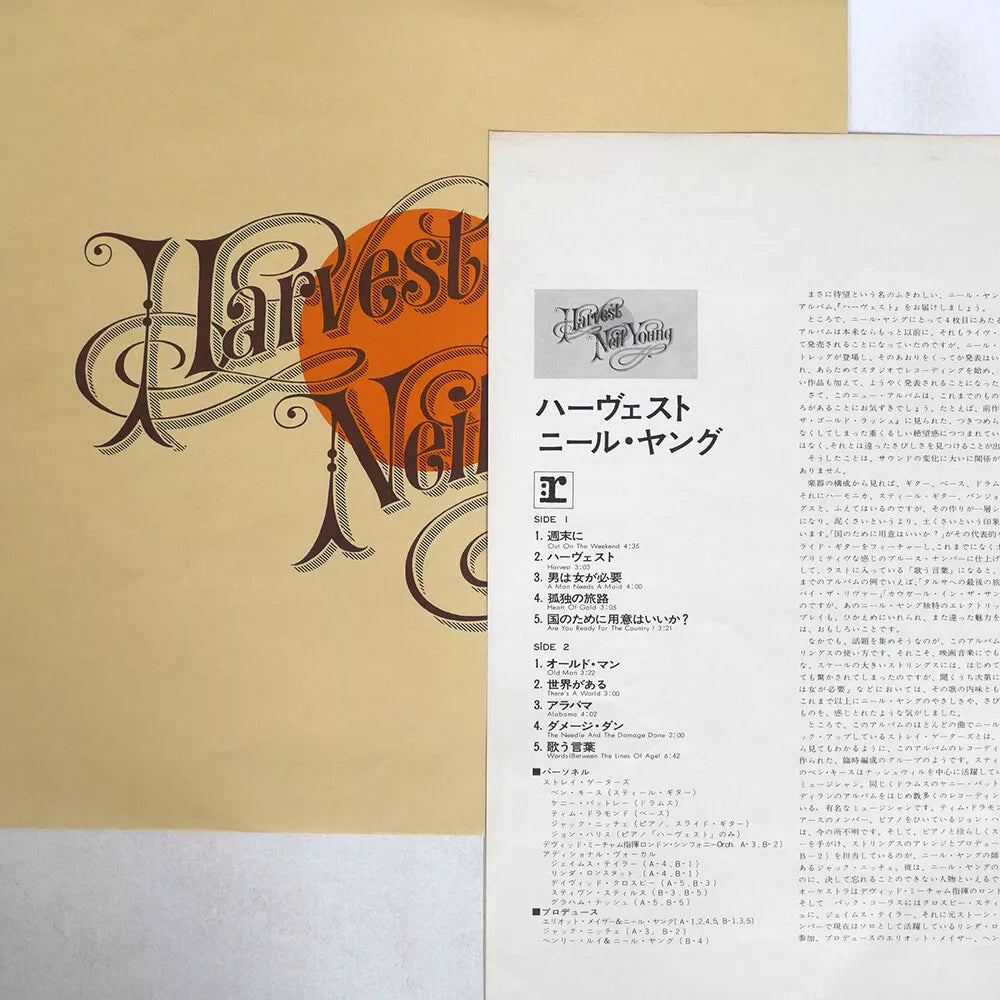 Harvest
Neil
Harvest
Neil Young
ハーヴェスト
ニール・ヤング
r
SIDE 1
1. 週末に
Out On The Weekend 4:35
2. ハーヴェスト
Harvest 3:03
3. 男は女が必要
A Man Needs A Maid 4:00
4. 孤独の旅路
Heart Of Gold 3:05
5. 国のために用意はいいか?
Are You Ready For The Country? 3:21
SIDE 2
1. オールド・マン
Old Man 3:22
2. 世界がある
There's A World 3:00
3. アラバマ
Alabama 4:02
4. ダメージ・ダン
The Needle And The Damage Done 2:00
5. 歌う言葉
Words(Between The Lines Of Age) 6:42
■パーソネル
ストレイ・ゲーターズ
ベン・キース(スティール・ギター)
ケニー・バットレー(ドラムス)
ティム・ドラモンド(ベース)
ジャック・ニッチェ(ピアノ、スライド・ギター)
ジョン・ハリス(ピアノ「ハーヴェスト」のみ)
デヴィッド・ミーチャム指揮ロンドン・シンフォニーOrch. A-3、B-2)
アディショナル・ヴォーカル
ジェイムス・テイラー(A-4、B-1)
リンダ・ロンスタット(A-4、B-1)
デイヴィッド・クロスビー(A-5、B-3)
スティヴン・スティルス(B-3、B-5)
グラハム・ナッシュ(A-5、B-5)
■プロデュース
エリオット・メイザー&ニール・ヤング(A-1,2,4,5, B-1,3,5)
ジャック・ニッチェ(A-3、B-2)
ヘンリー・ルイ&ニール・ヤング(B-4)
まさに待望という名のふさわしい、ニール・ヤン
アルバム『ハーヴェスト』をお届けしましょう。
ところで、ニール・ヤングにとって4枚目にあたる
アルバムは本来ならもっと以前に、それもライヴ・
て発売されることになっていたのですが、ニール・
トレッグが登場し、そのあおりをくってか発表はい
れ、あらためてスタジオでレコーディングを始め、
い作品も加えて、ようやく発表されることになった
さて、このニュー・アルバムは、これまでのもの
ろがあることにお気ずきでしょう。たとえば、前作
ザ・ゴールド・ラッシュ』に見られた、つきつめら
なくしてしまった重くるしい絶望感につつまれてい
はなく、それとは違ったさびしさを見つけることが出
そうしたことは、サウンドの変化に大いに関係が
ありません。
楽器の構成から見れば、ギター、ベース、ドラム
それにハーモニカ、スティール・ギター、バンジョ
グスと、ふえてはいるのですが、その作りが一層シ
になり、泥くさいというより、土くさいという印象
います。「国のために用意はいいか?」がその代表的
ライド・ギターをフィーチャーし、これまでになく土
プリミティヴな感じのブルース・ナンバーに仕上げ
して、ラストに入っている「歌う言葉」になると、
までのアルバムの例でいえば、「タルサへの最後の旅
バイ・ザ・リヴァー」「カウガール・イン・ザ・サン
のですが、あのニール・ヤング独特のエレクトリッ
プレイも、ひかえめにいれられ、また違った魅力を
は、おもしろいことです。
なかでも、話題を集めそうなのが、このアルバム
リングスの使い方です。それこそ、映画音楽にでも
な、スケールの大きいストリングスには、はじめて
ても驚かされてしまったのですが、聞くうち次第に
は女が必要」などにおいては、その歌の内味とも
これまで以上にニール・ヤングのやさしさや、さび
ものを、感じとれたような気がしました。
ところで、このアルバムのほとんどの曲でニール
ック・アップしているストレイ・ゲーターズとは、
ら見てもわかるように、このアルバムのレコーディ
作られた、臨時編成のグループのようです。スティ
のベン・キースはナッシュヴィルを中心に活躍して
ミュージシャン。同じくドラムスのケニー・バット
ディランのアルバムをはじめ数多くのレコーディン
いる、有名なミュージシャンです。ティム・ドラモン
アースのメンバー、ピアノをひいているジョン・ハ
は、今の所不明です。そして、ピアノと珍らしくス
ーを手がけ、ストリングスのアレンジとプロデュー
B-2)を担当しているのが、ニール・ヤングの師
あるジャック・ニッチェ。彼は、ニール・ヤングの
のに、決して忘れることのできない人物といえるで
オーケストラはデヴィッド・ミーチャム指揮のロンド
そして バック・コーラスにはクロスビー・スティ
ュに、ジェイムス・テイラー、それに元ストーン・
ンバーで現在はソロとして活躍しているリンダ・ロ
参加。プロデュースのエリオット・メイザー、ヘン